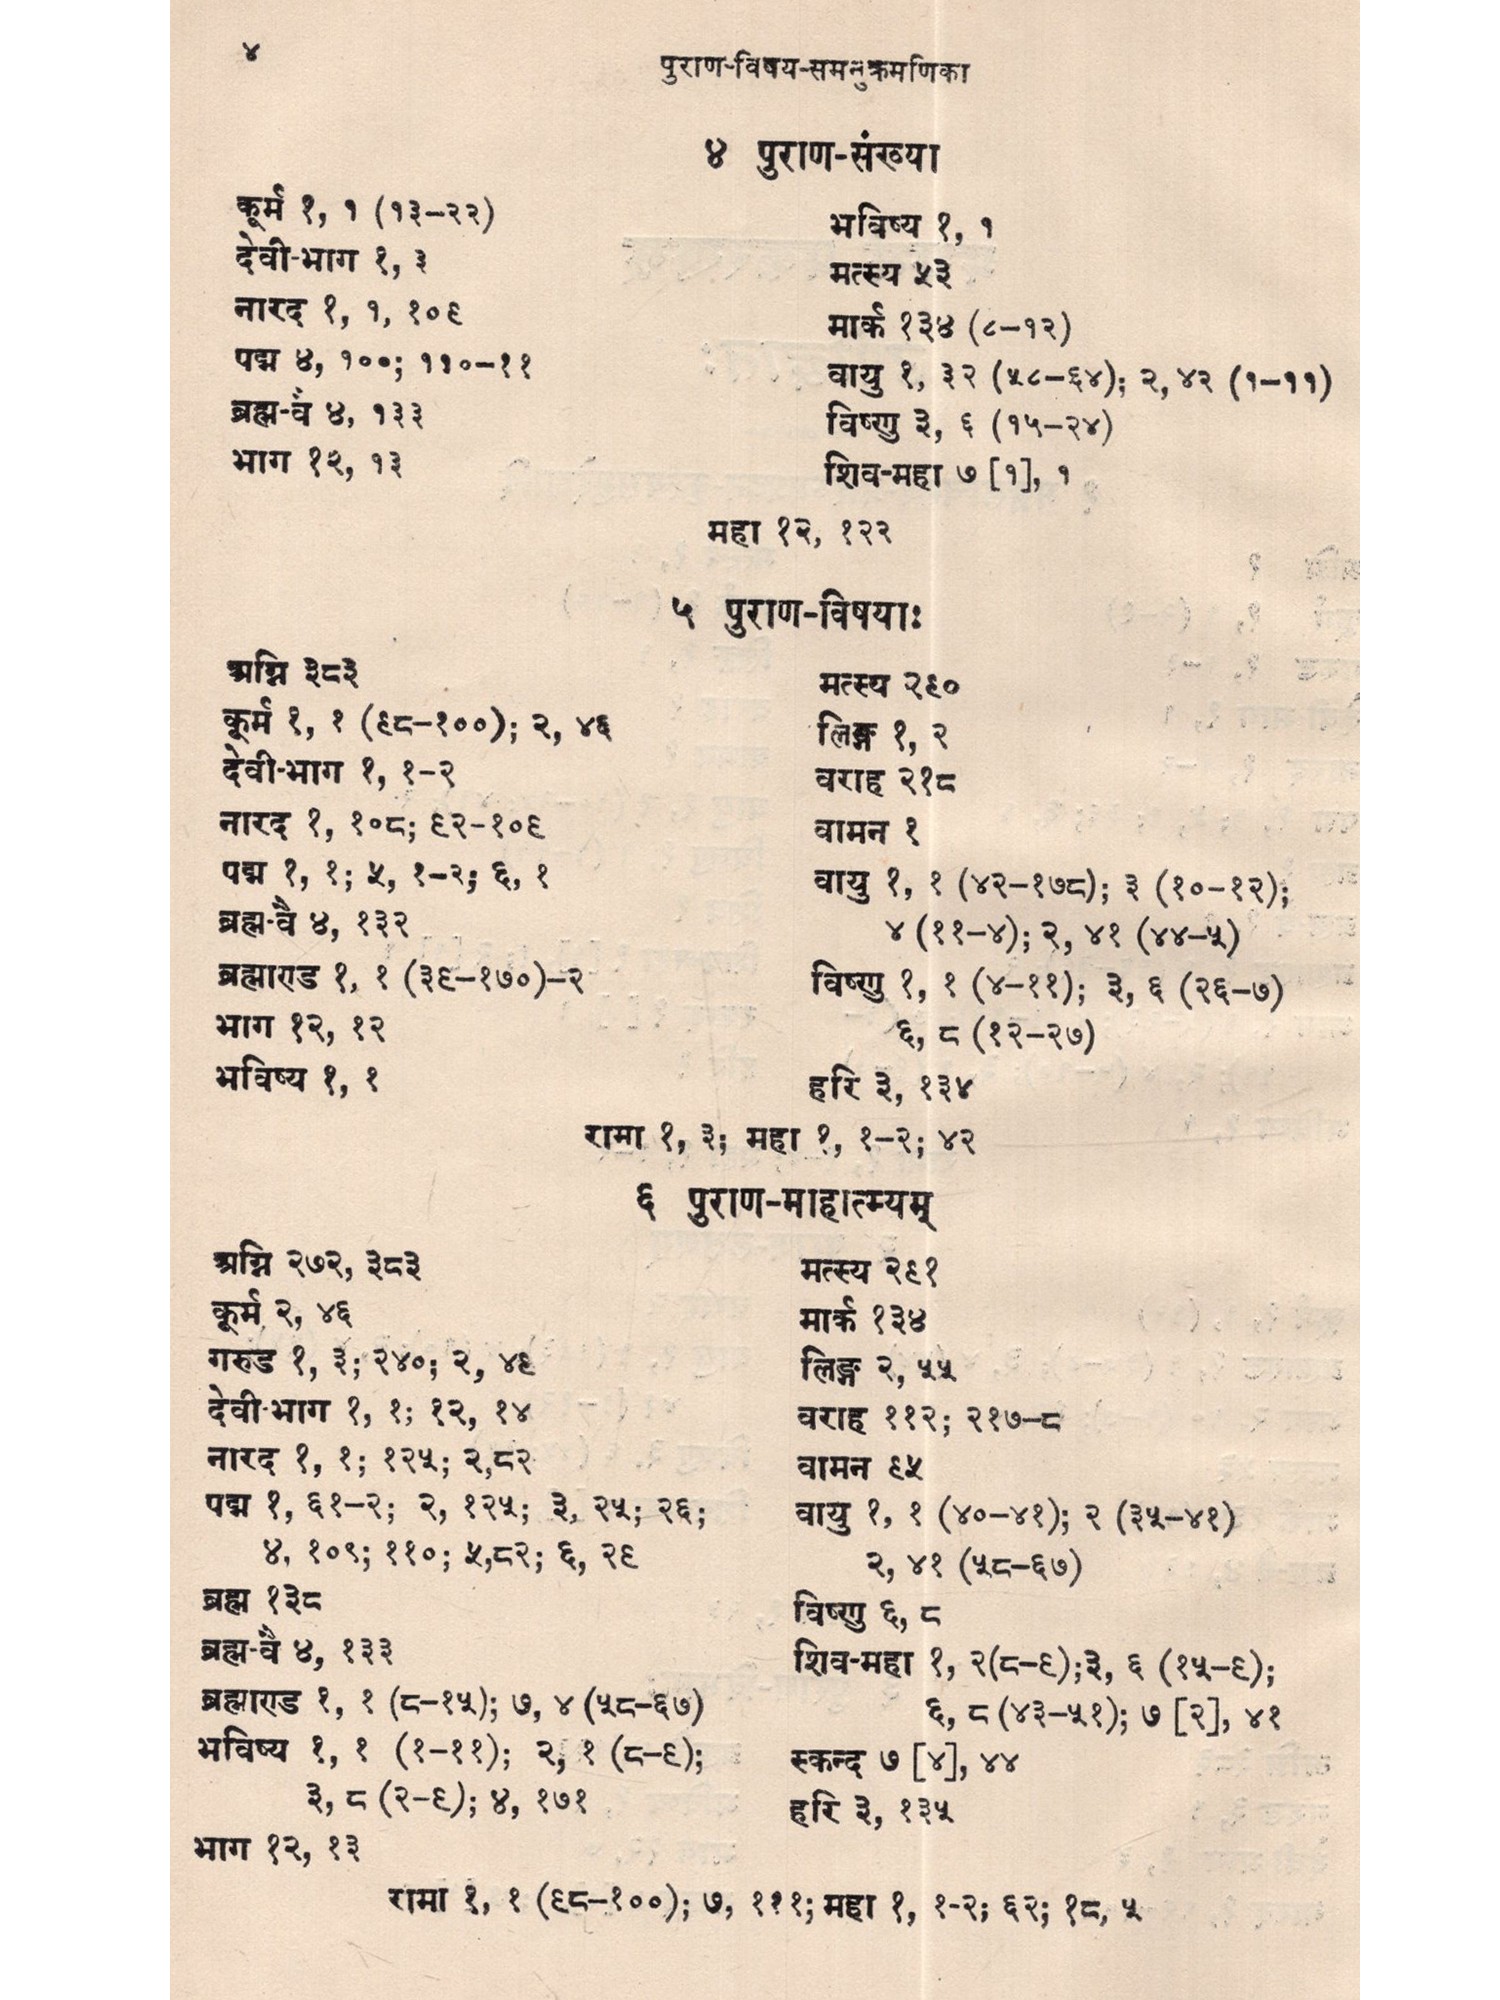 ४
पुराण-विषय-समनुक्रमणिका
४ पुराण-संख्या
कूर्म १, १ (१३–२२)
देवी-भाग १, ३
नारद १, १, १०९
पद्म ४, १००; ११०–११
ब्रह्म-वै ४, १३३
भाग १२, १३
भविष्य १, १
मत्स्य ५३
मार्क १३४ (८–१२)
वायु १, ३२ (५८–६४); २, ४२ (१–११)
विष्णु ३, ६ (१५–२४)
शिव-महा ७ [१], १
महा १२, १२२
५ पुराण-विषयाः
अग्नि ३८३
कूर्म १, १ (९८–१००); २, ४६
देवी-भाग १, १–२
नारद १, १०८; ९२–१०९
पद्म १, १; ५, १–२; ६, १
ब्रह्म-वै ४, १३२
ब्रह्माण्ड १, १ (३९–१७०)–२
भाग १२, १२
भविष्य १, १
मत्स्य २९०
लिङ्ग १, २
वराह २१८
वामन १
वायु १, १ (४२–१७८); ३ (१०–१२);
४ (११–४); २, ४१ (४४–५)
विष्णु १, १ (४–११); ३, ६ (२६–७)
६, ८ (१२–२७)
हरि ३, १३४
रामा १, ३; महा १, १–२; ४२
६ पुराण-माहात्म्यम्
अग्नि २७२, ३८३
कूर्म २, ४६
गरुड १, ३; २४०; २, ४९
देवी-भाग १, १; १२, १४
नारद १, १; १२५; २,८२
पद्म १, ६१–२; २, १२५; ३, २५; २६;
४, १०९; ११०; ५,८२; ६, २९
ब्रह्म १३८
ब्रह्म-वै ४, १३३
ब्रह्माण्ड १, १ (८–१५); ७, ४ (५८–६७)
भविष्य १, १ (१–११); २, १ (८–९);
३, ८ (२–९); ४, १७१
भाग १२, १३
मत्स्य २९१
मार्क १३४
लिङ्ग २, ५५
वराह ११२; २१७–८
वामन ९५
वायु १, १ (४०–४१); २ (३५–४१)
२, ४१ (५८–६७)
विष्णु ६, ८
शिव-महा १, २(८–९);३, ६ (१५–९);
६, ८ (४३–५१); ७ [२], ४१
स्कन्द ७ [४], ४४
हरि ३, १३५
रामा १, १ (९८–१००); ७, १११; महा १, १-२; ६२; १८, ५